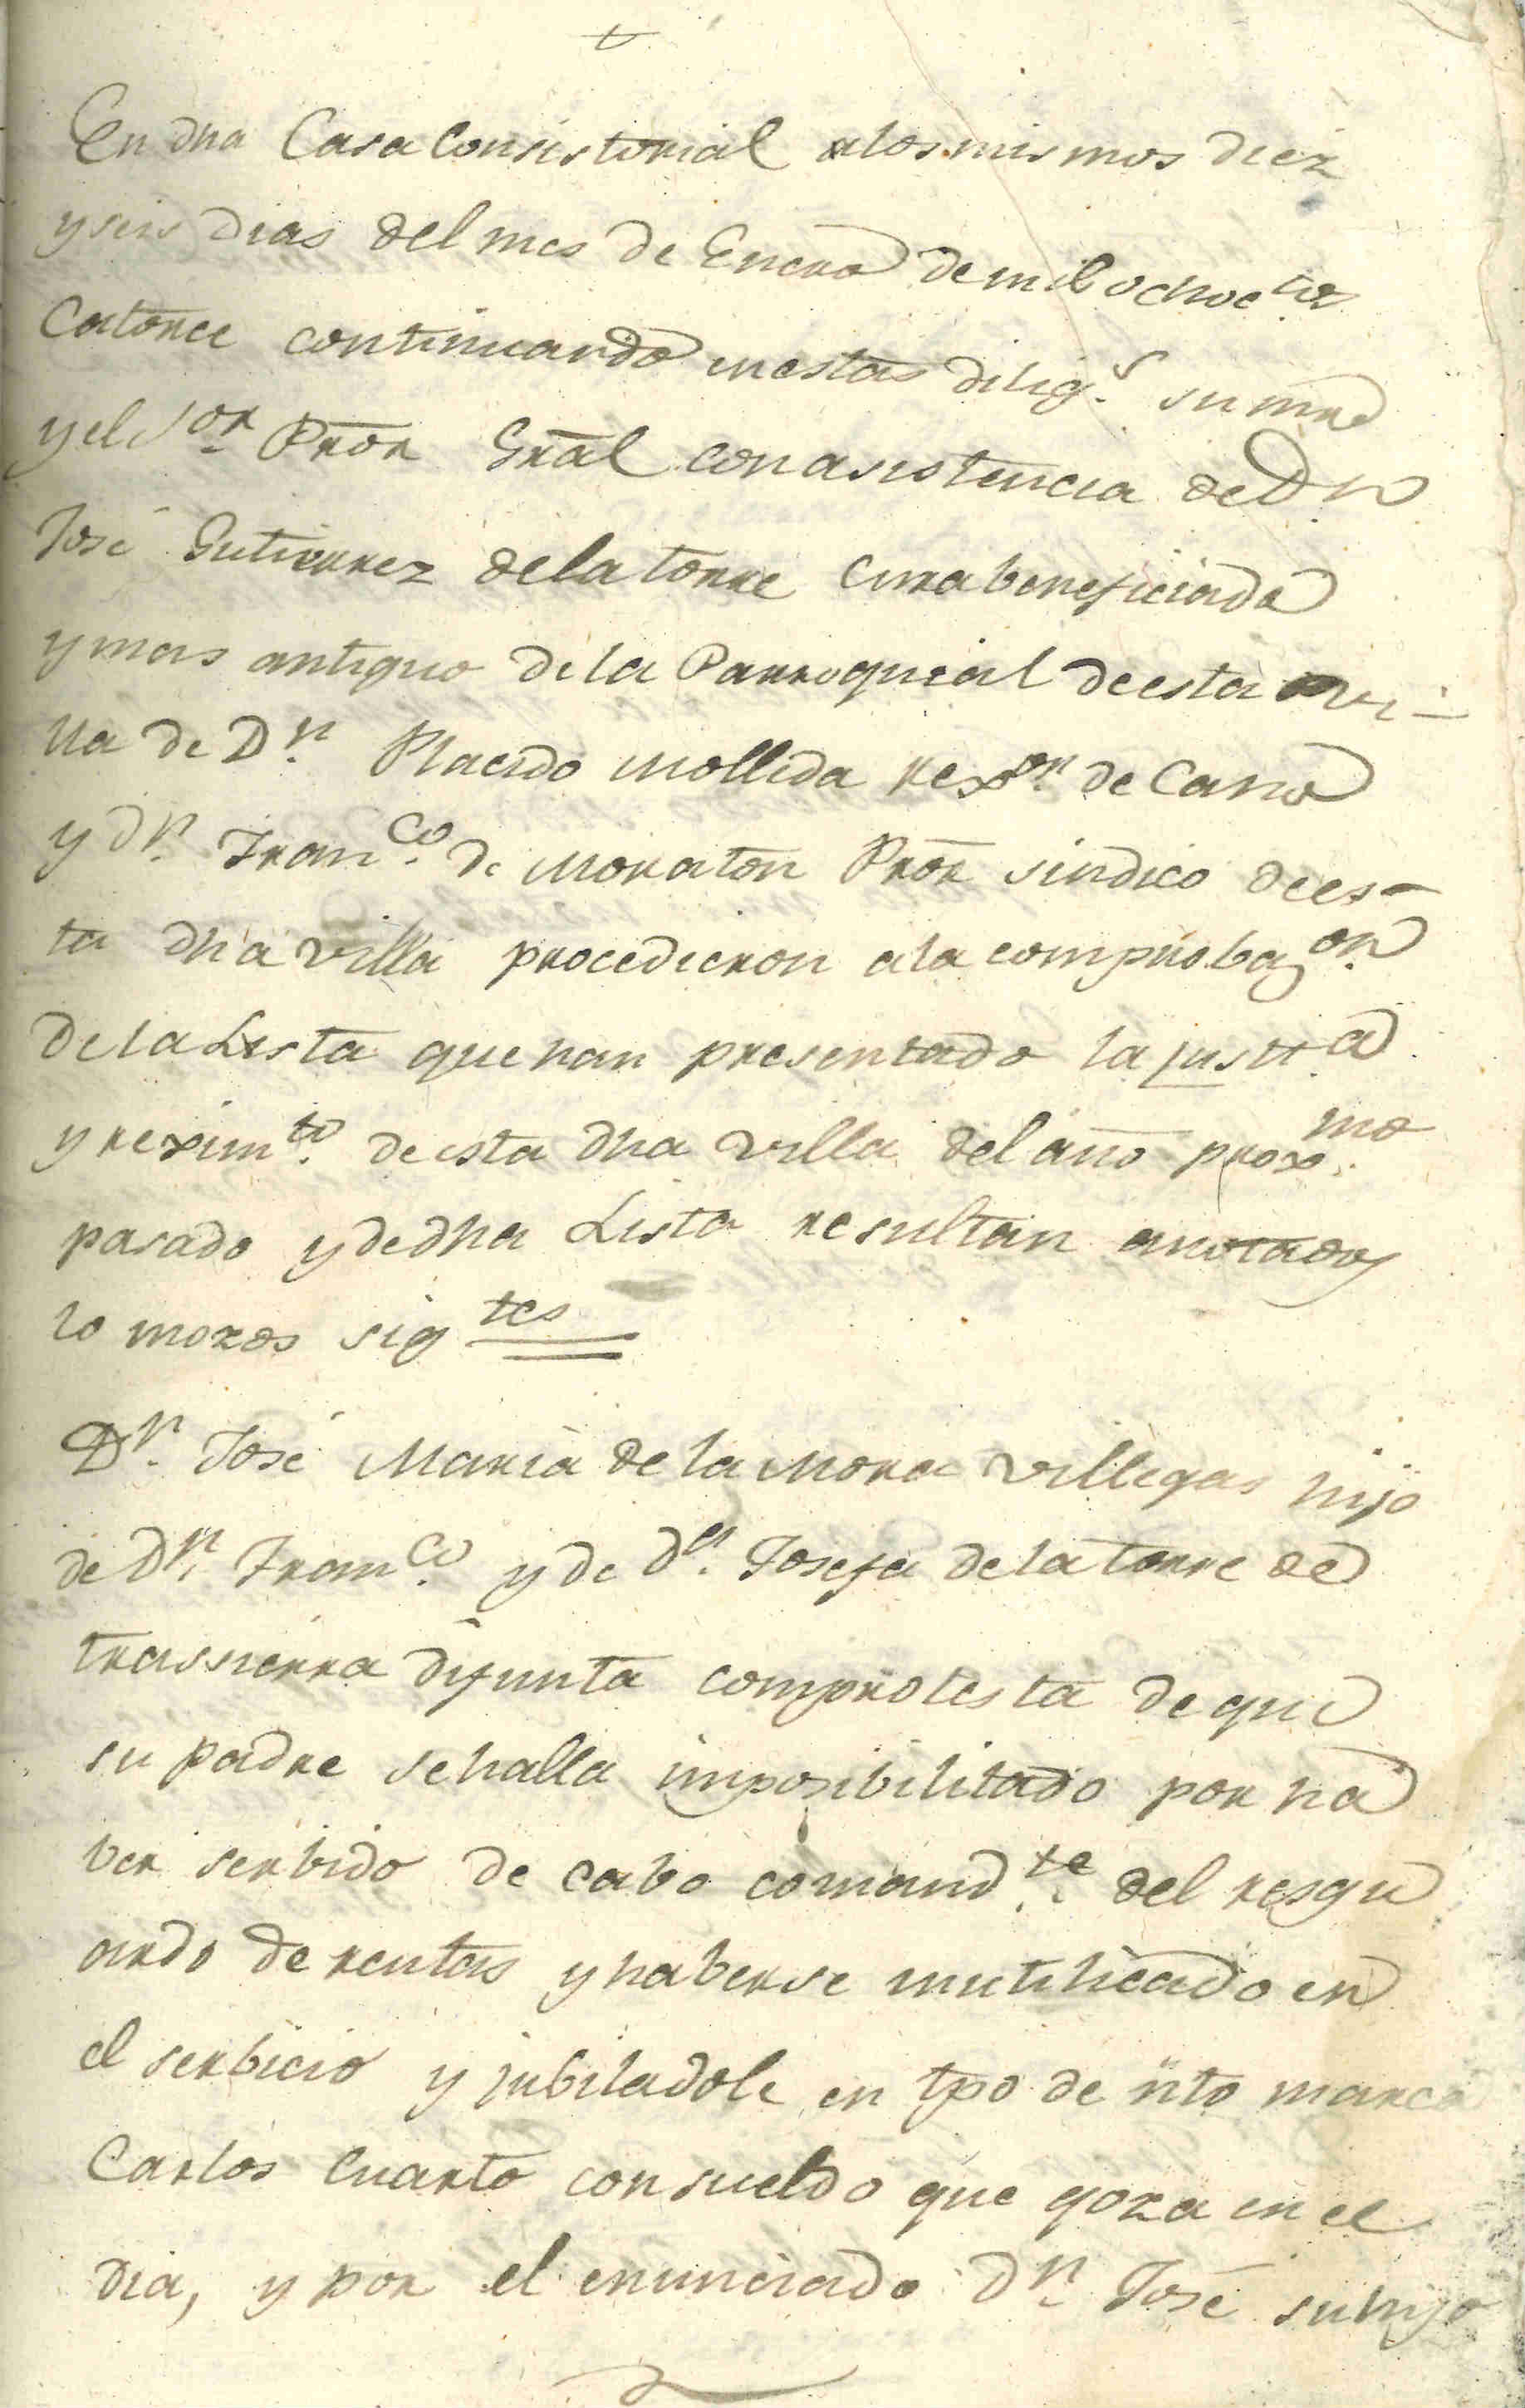 En dha Casa Consistorial a los mismos diez
y seis dias del mes de Enero de mil ochoc.tos
Catorce continuando en estas dilig.s su mrd
y el S.or Pror Gral con asistencia de Dn
José Gutierrez de la torre cura beneficiado
y mas antiguo de la Parroquial de esta vi-
lla de D.n Placido Mollida rexor. de Cano
y d.n Fran.co de Moraton Pror sindico de es-
ta dha villa procedieron a la comprobazon.
De la Lista que han presentado la justt.a
y reximto. de esta dha villa del año proxmo.
pasado y de dha Lista resultan anotados
lo mozos sigtes
D.n José Maria de la Mora Villegas hijo
de D.n Fran.co y de d.a Josefa de la torre de
trassierra difunta comprotesta de que
su padre se halla imposibilitado por ha
ber serbido de cabo comand.te del resgu
ardo de rentas y haberse inutilicado en
el serbicio y jubiladole en tpo de nto marca
Carlos Cuarto con sueldo que goza en el
dia, y por el enunciado d.n José su hijo